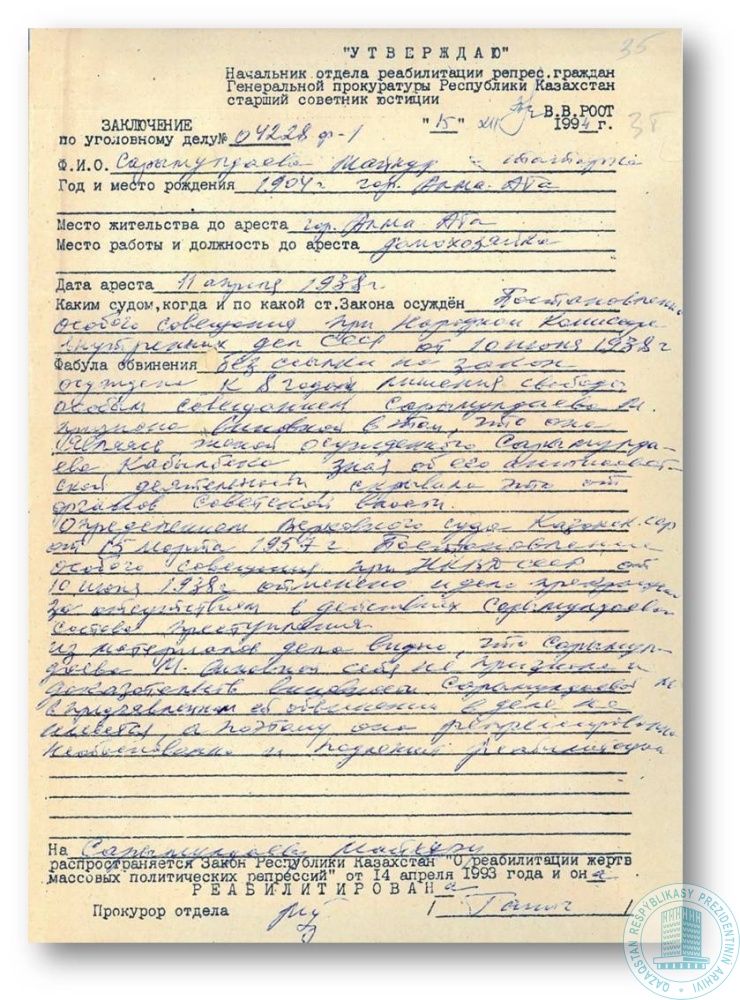 35
"УТВЕРЖДАЮ"
Начальник отдела реабилитации репрес.граждан
Генеральной прокуратуры Республики Казахстан
старший советник юстиции
В.В.РООТ
"15" XII 1994 г.
35
ЗАКЛЮЧЕНИЕ
по уголовному делу№ 04228 ф-1
Ф.И.О. Сарымулдаева
Год и место рождения 1904 г гор. Алма-Ата
Место жительства до ареста гор. Алма-Ата
Место работы и должность до ареста домохозяйка
Дата ареста 11 апреля 1938г
Каким судом,когда и по какой ст.Закона осуждён Постановлением
Особого совещания при Народном Комиссаре
внутренних дел СССР от 10 июня 1938 г
Фабула обвинения Без ссылки на закон
осуждена к 8 годам лишения свободы
особым совещанием Сарымулдаева М.
признана виновной в том, что она
являясь женой осужденного Сарымулда-
ева Кабылбека зная об его антисовет-
ской деятельности скрывала это от
органов Советской власти.
Определением Верховного суда Казахск. ССР
от 15 марта 1957 г Постановление
Особого совещания при НКВД СССР от
10 июня 1938г отменено и дело прекращено
за отсутствием в действиях Сарымулдаевой
состава преступления.
из материалов дела видно, что Сарымул-
даева М. виновной себя не признала и
доказательств виновности Сарымулдаевой М.
в предъявленном ей обвинении в деле не
имеется, а поэтому она репрессирована
необоснованно и подлежит реабилитации
На Сарымулдаеву
распространяется Закон Республики Казахстан "О реабилитации жертв
массовых политических репрессий" от 14 апреля 1993 года и она
РЕАБИЛИТИРОВАНа
Прокурор отдела / /
QAZAQSTAN RESPYBLIKASY PREZIDENTINIŃ ARHIVI